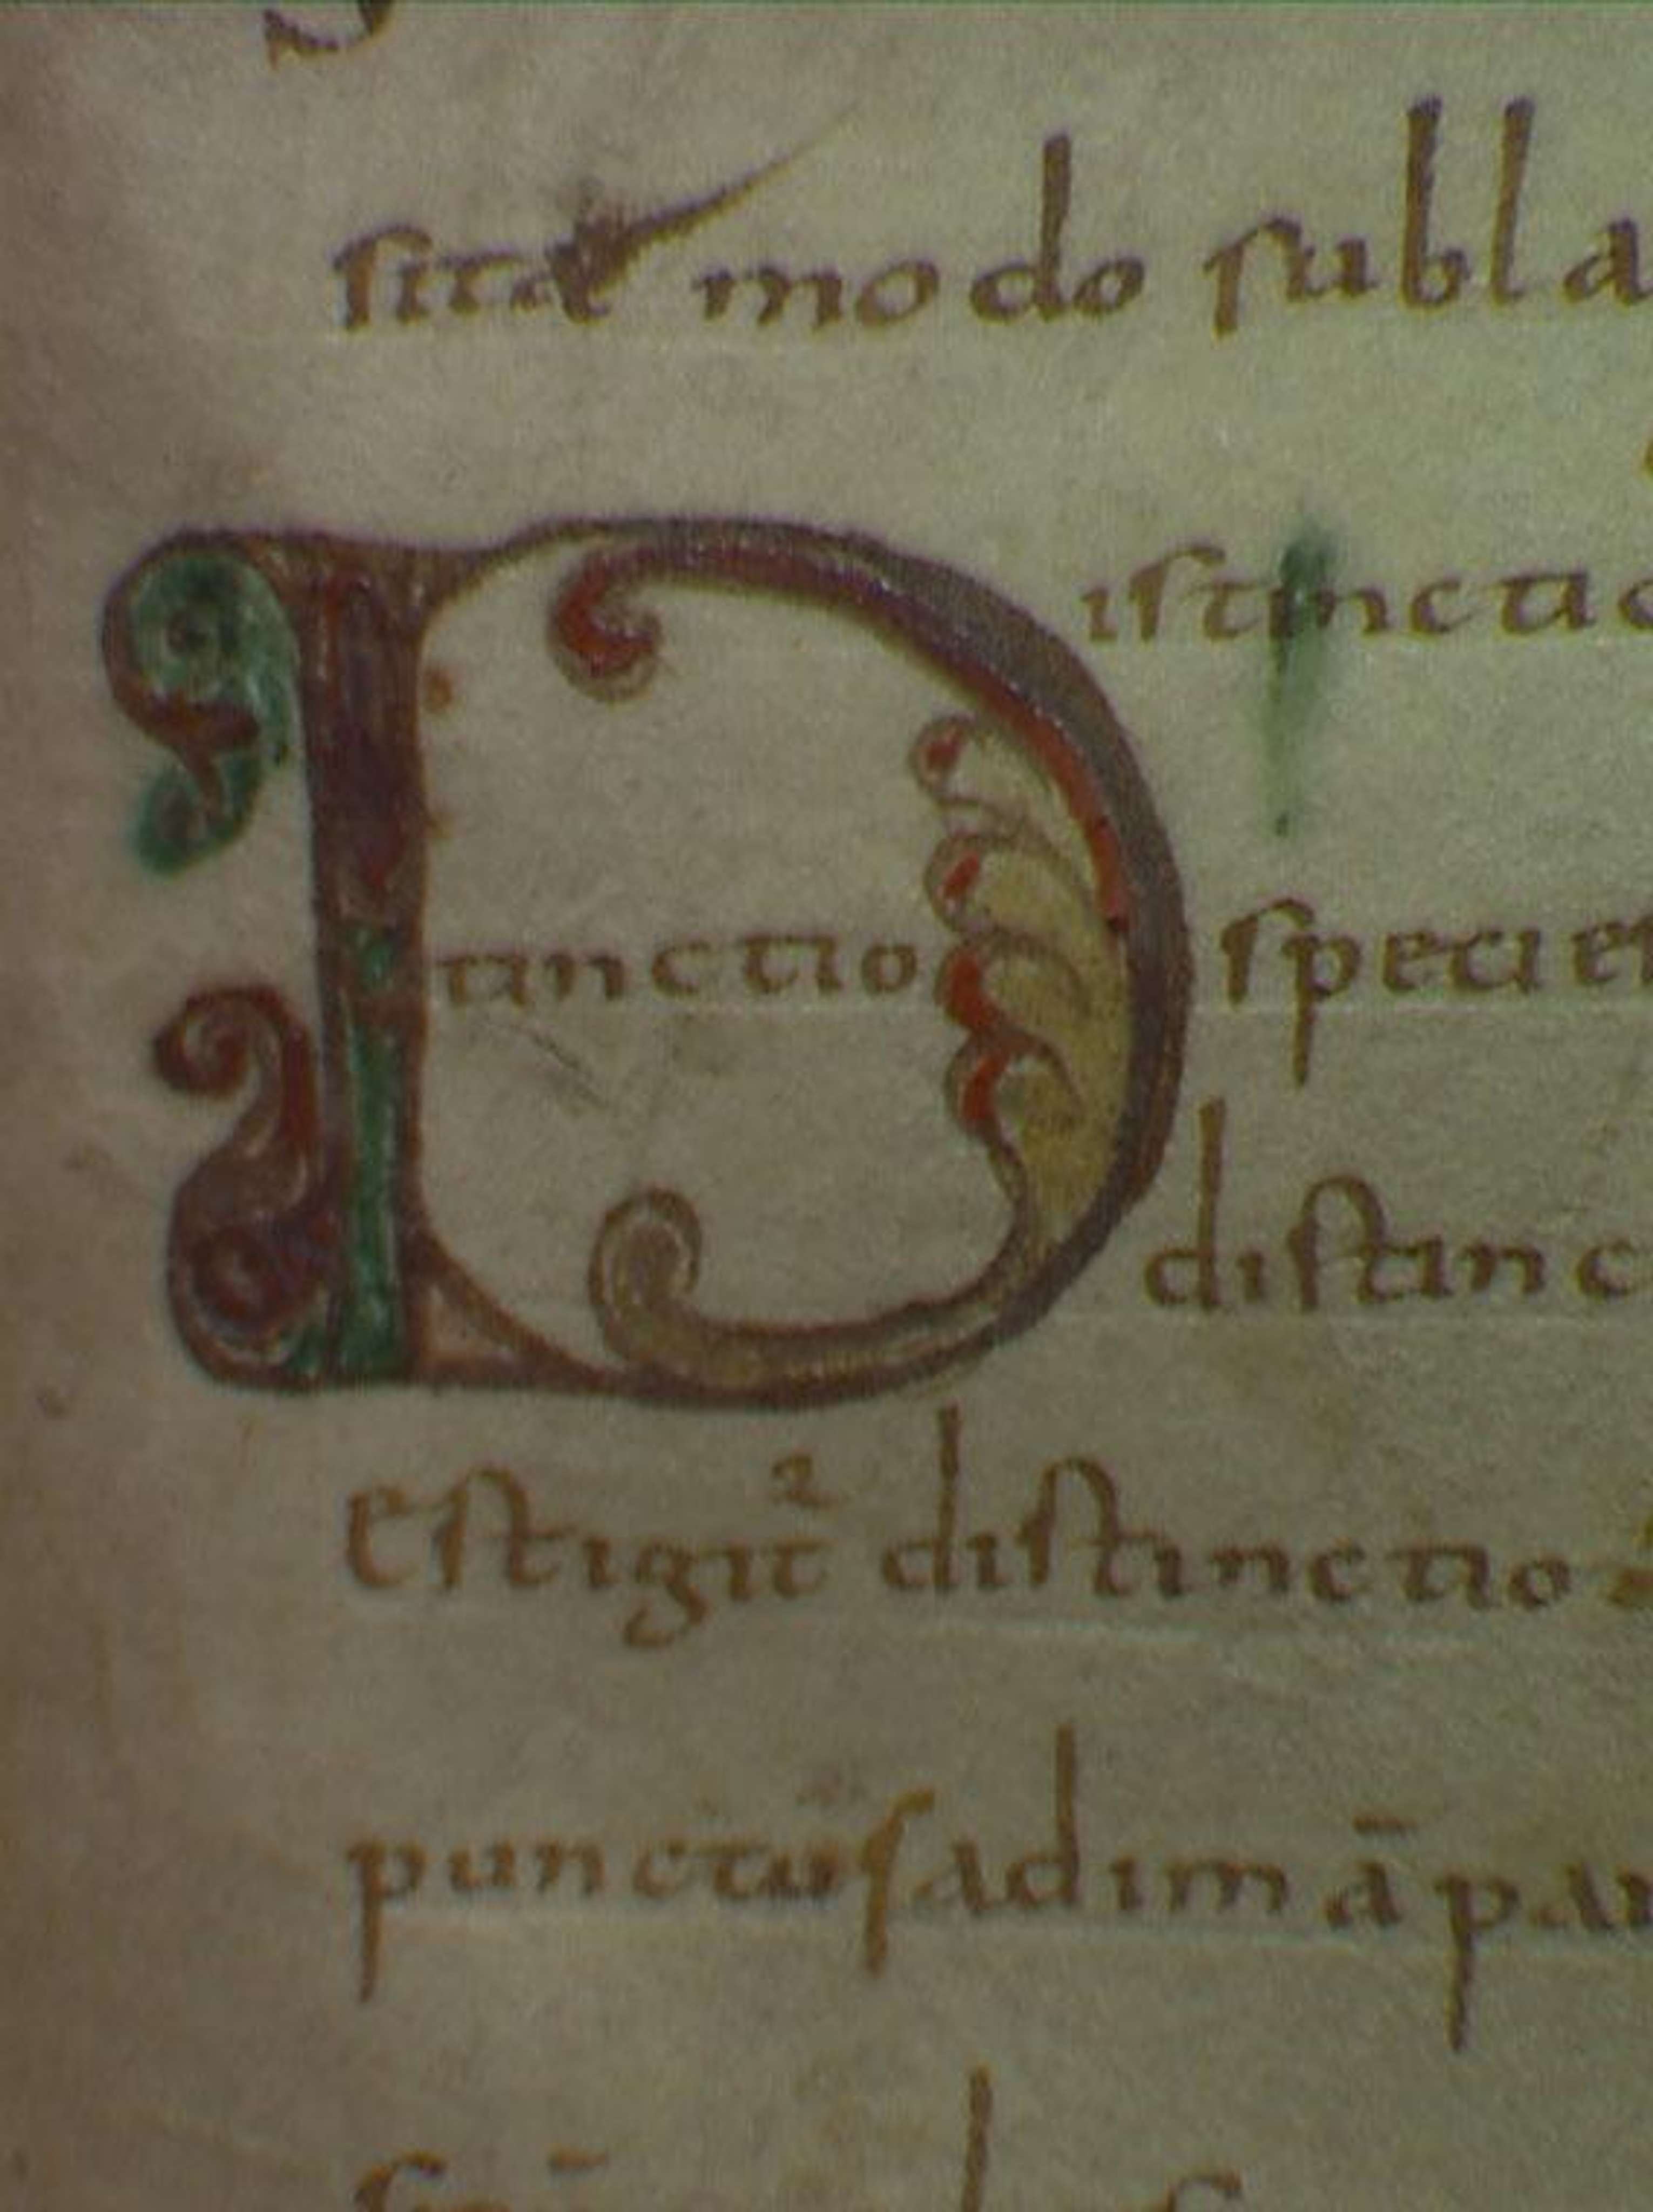 sitae modo subla
Distinctio
tinctio species
distinc
Est igit² distinctio
punctu sadim ā par